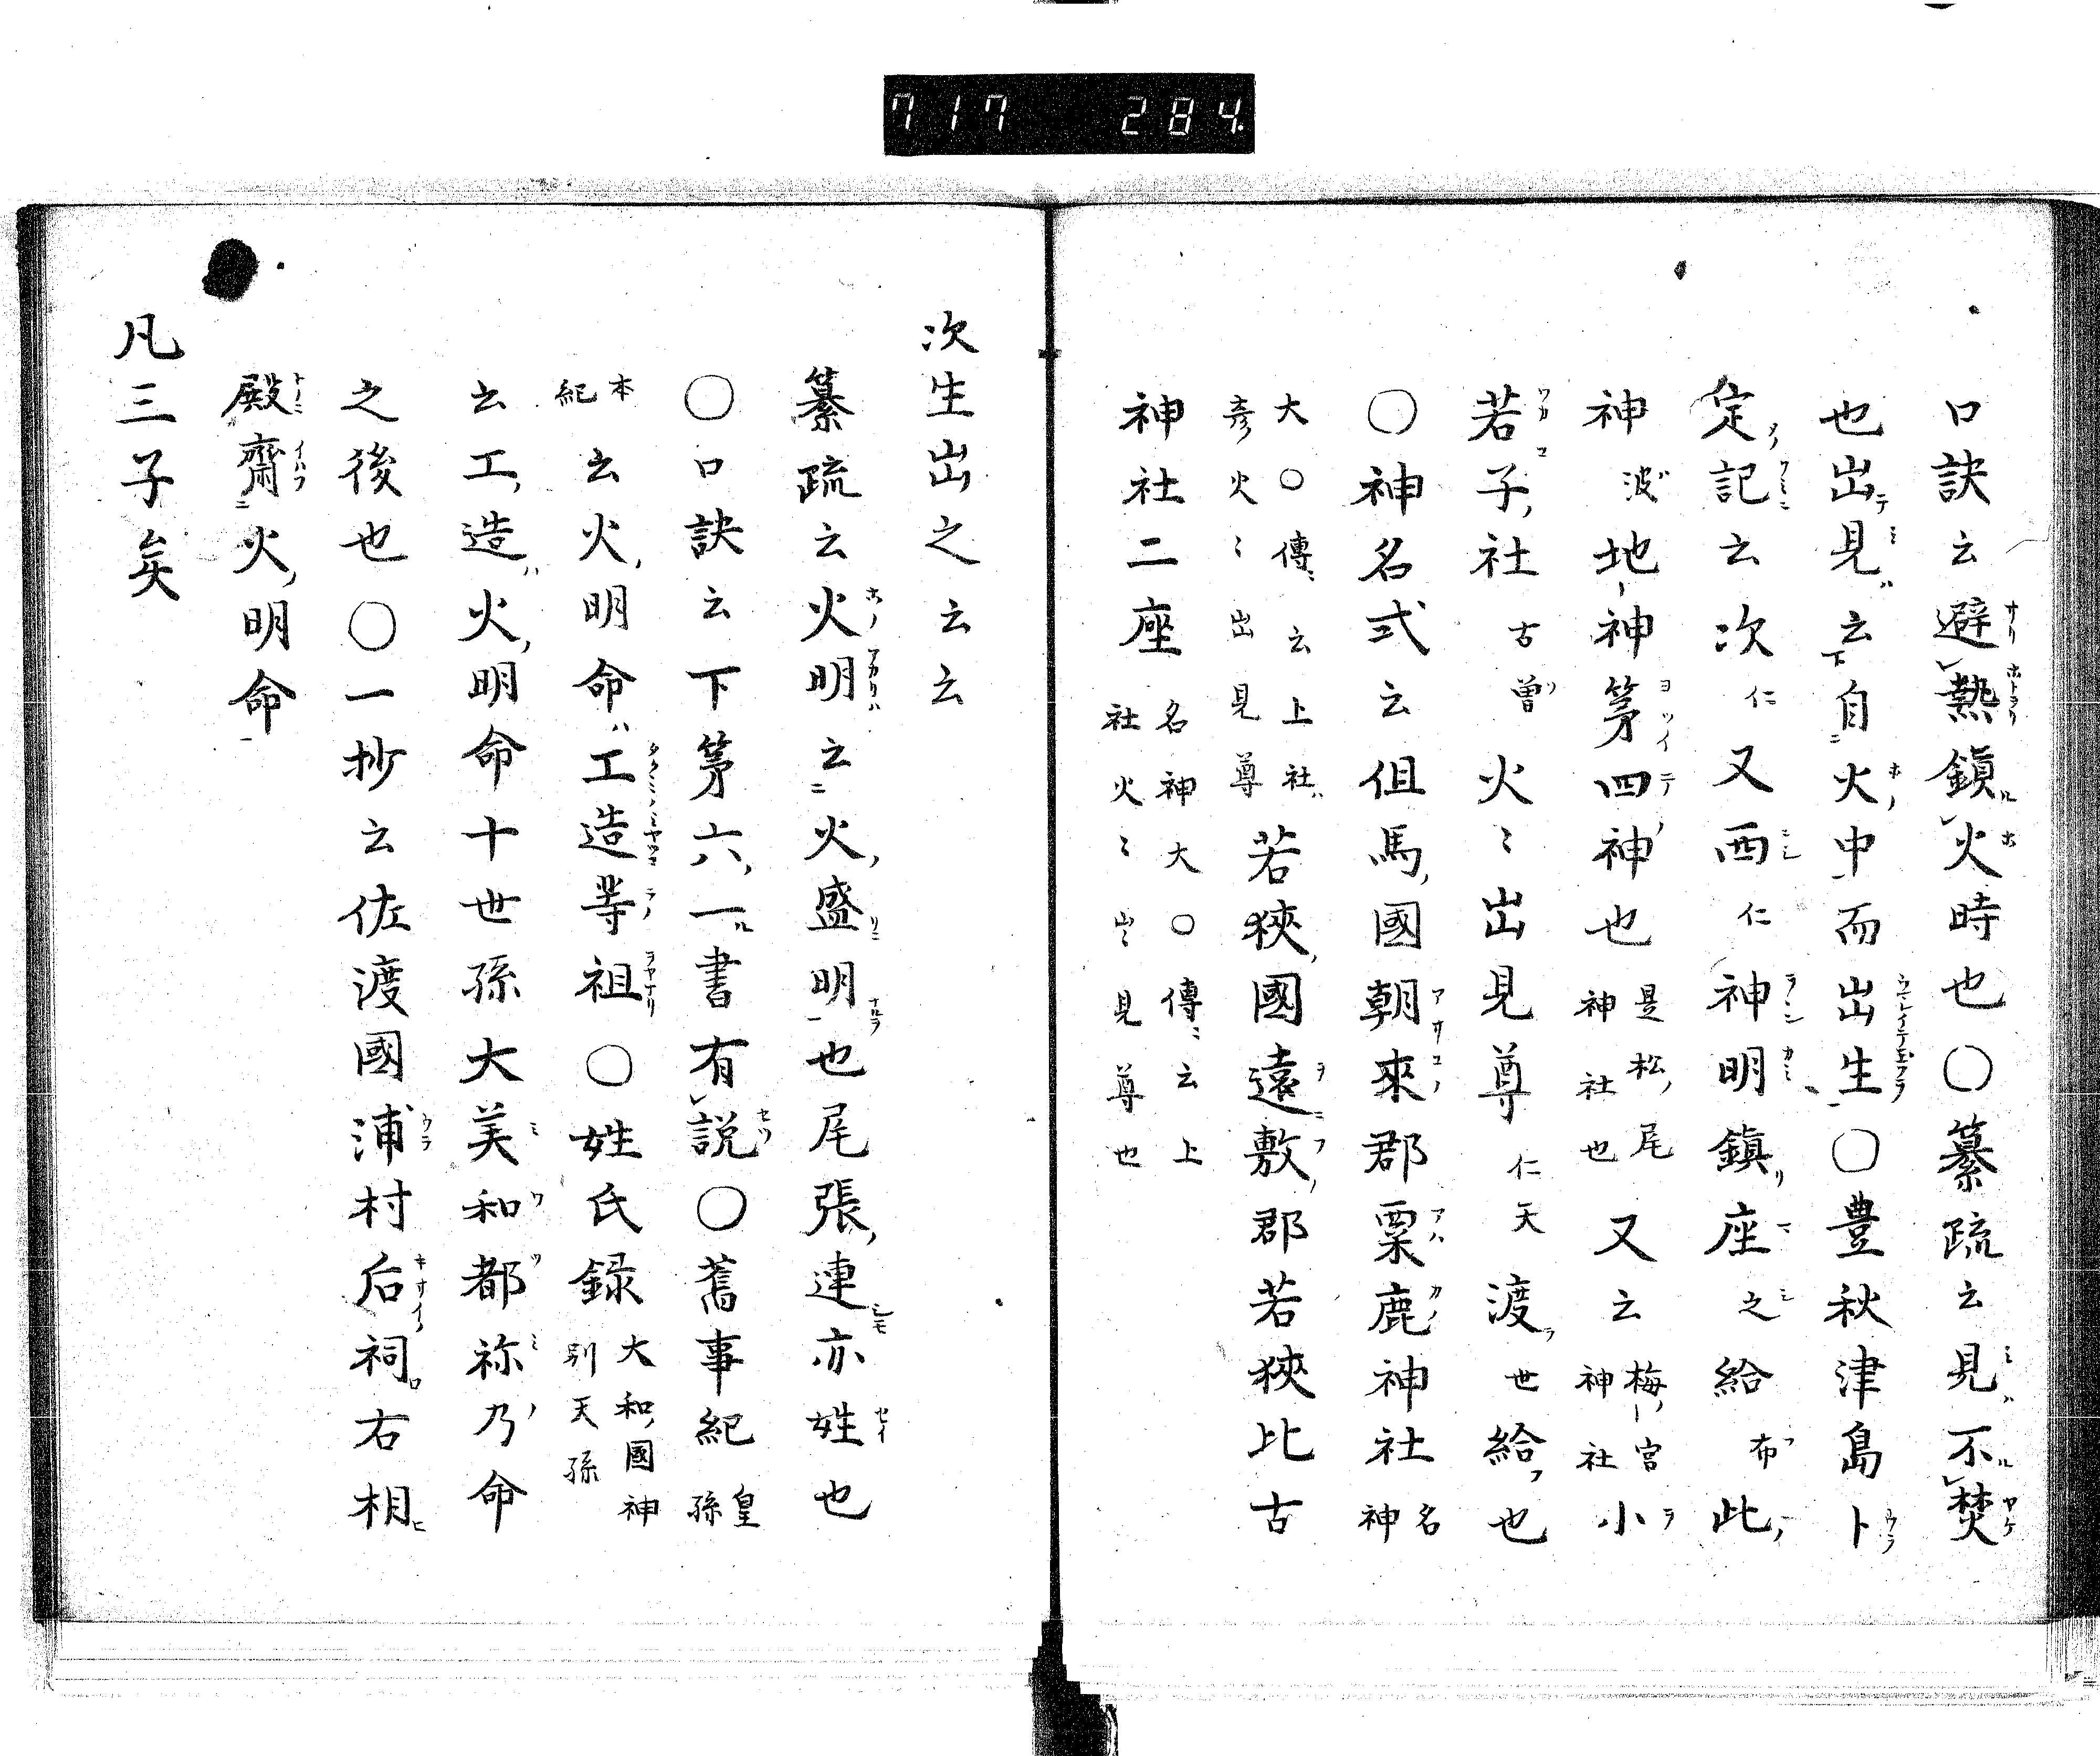 717 284.
口訣云避熱鎮火時也〇纂疏云見不焚
也出見云自火中而出生〇豊秋津島卜
定記云次仁又西仁神明鎮座之給布此
神波地神第四神也是松尾神社也又云梅宮神社小
若子社古曽火〻出見尊仁天渡世給也
〇神名式云伹馬國朝來郡粟鹿神社名神
大〇傳云上社彦火〻出見尊若狹國遠敷郡若狹比古
神社二座名神大〇傳云上社火〻出見尊也
次生出之云云
纂疏云火明云火盛明也尾張連亦姓也
〇口訣云下第六一書有説〇舊事紀皇孫
本紀云火明命工造等祖〇姓氏録大和國神別天孫
云工造火明命十世孫大美和都祢乃命
之後也〇一抄云佐渡國浦村后祠右相
殿齋火明命
凡三子矣